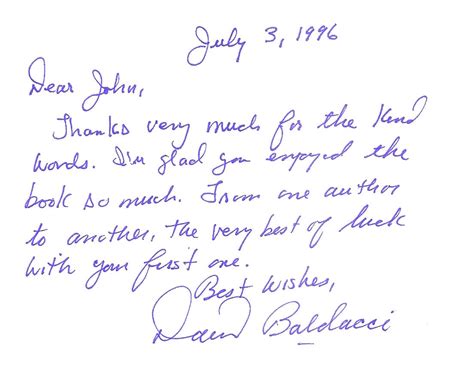 July 3, 1996
Dear John,
Thanks very much for the kind
words. I'm glad you enjoyed the
book so much. From one author
to another, the very best of luck
with your first one.
Best wishes,
David Baldacci